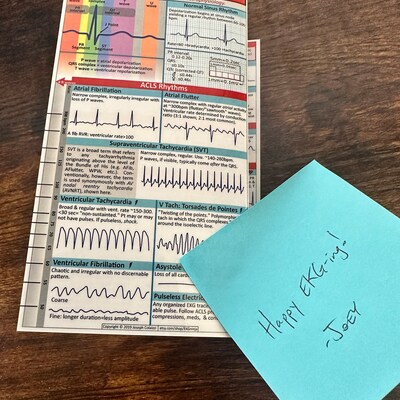 Normal Sinus Rhythm
Depolarization begins at sinus node
yielding a regular rhythm between 60-
J Point
PR
Segment
ST
Segment
P wave = atrial depolarization
QRS complex = ventricular depolarization
T wave = ventricular repolarization
Rate<60 =bradycardia >100 =tachycardia
PR interval
0.12-0.20s
ACLS Rhythms
Atrial Fibrillation
Narrow complex, irregularly-irregular with
loss of P waves.
A fib RVR: ventricular rate>100
Atrial Flutter
Narrow complex with regular atrial activity
at ~300bpm (flutter/"sawtooth" waves).
Ventricular rate determined by conduction
ratio (3:1 shown, 2:1 most common).
Supraventricular Tachycardia (SVT)
SVT is a broad term that refers
to any tachyarrhythmia
originating above the level of
the Bundle of His (e.g. Afib,
AFlutter, WPW, etc.). Con-
ventionally, however, the term
is used synonymously with AV
nodal reentry tachycardia
(AVNRT), shown here.
Narrow complex, regular. Use. ~140-280bpm.
P waves, if visible, typically come after the QRS.
Ventricular Tachycardia
Broad & regular with vent. rate ~150-300.
<30 sec= "non-sustained." Pt may or may
not have pulses. If pulseless, shock.
V Tach: Torsades de Pointes
"Twisting of the points." Polymorphic
tach in which the QRS complexes
around the isoelectric line.
Ventricular Fibrillation
Chaotic and irregular with no discernable
pattern.
Coarse
Fine: longer duration=less amplitude
Asystole
Loss of all card
Pulseless Electric
Any organized EKG trac
able pulse. Follow ACLS p
compressions, meds, & con
Copyright © 2019 Joseph Colantoi
Happy EKG-ing!
-JOEY